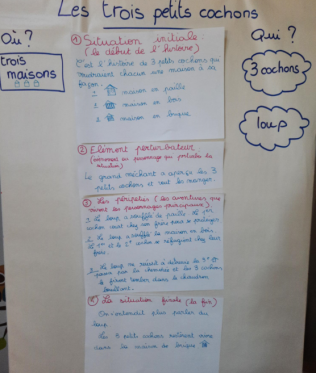 Les trois petits cochons
Où ?
trois
maisons
Qui ?
3 cochons
loup
① Situation initiale :
(le début de l'histoire)
C'est l'histoire de 3 petits cochons qui
voudraient chacun une maison à sa
façon :
1 maison en paille
2 maison en bois
3 maison en brique
② Elément perturbateur
(événement ou personnage qui perturbe la
situation)
Le grand méchant a aperçu les 3
petits cochons et veut les manger.
③ Les péripéties (les aventures que
vivent les personnages principaux)
1. Le loup a soufflé de paille. Le 1er
cochon court chez son frère pour se protéger.
2. Le loup a soufflé la maison en bois.
Le 1er et le 2e cochon se réfugient chez leur
frère.
3. Le loup ne réussit à détruire la 3e
passer par la cheminée et les 3 cochons
le firent tomber dans le chaudron
bouillant.
④ La situation finale (la fin)
On n'entendit plus parler du
loup.
Les 3 petits cochons restèrent vivre
dans la maison de brique